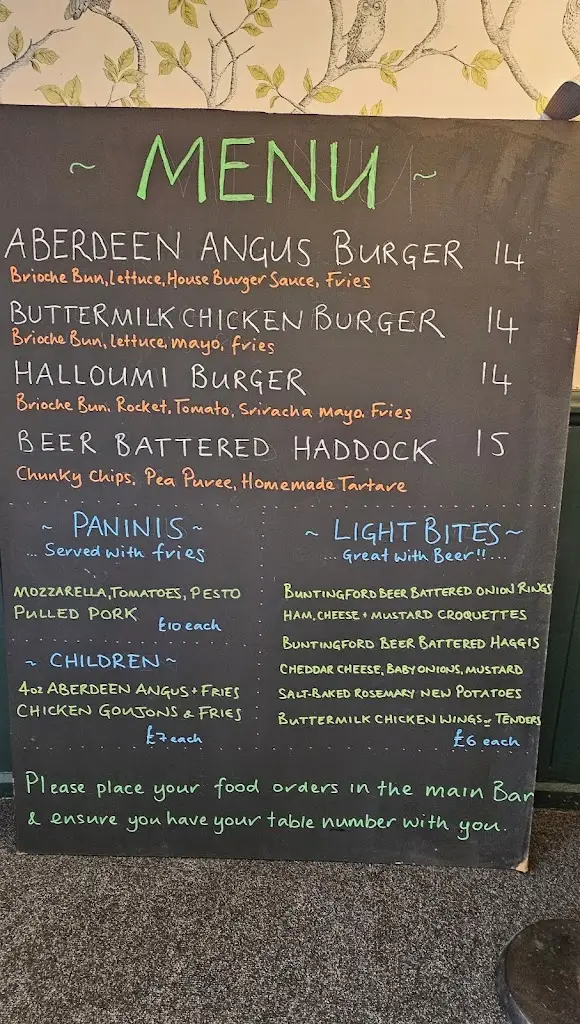 ~ MENU ~
ABERDEEN ANGUS BURGER 14
Brioche Bun, Lettuce, House Burger Sauce, Fries
BUTTERMILK CHICKEN BURGER 14
Brioche Bun, lettuce, mayo, fries
HALLOUMI BURGER 14
Brioche Bun. Rocket, Tomato, Sriracha mayo. Fries
BEER BATTERED HADDOCK 15
Chunky Chips. Pea Puree, Homemade Tartare
~ PANINIS ~
... Served with fries
MOZZARELLA, TOMATOES, PESTO
PULLED PORK
£10 each
~ CHILDREN ~
4oz ABERDEEN ANGUS + FRIES
CHICKEN GOUJONS & FRIES
£7 each
~ LIGHT BITES ~
... Great with Beer!! ...
BUNTINGFORD BEER BATTERED ONION RINGS
HAM, CHEESE + MUSTARD CROQUETTES
BUNTINGFORD BEER BATTERED HAGGIS
CHEDDAR CHEESE, BABY ONIONS, MUSTARD
SALT-BAKED ROSEMARY NEW POTATOES
BUTTERMILK CHICKEN WINGS or TENDERS
£6 each
Please place your food orders in the main Bar
& ensure you have your table number with you.